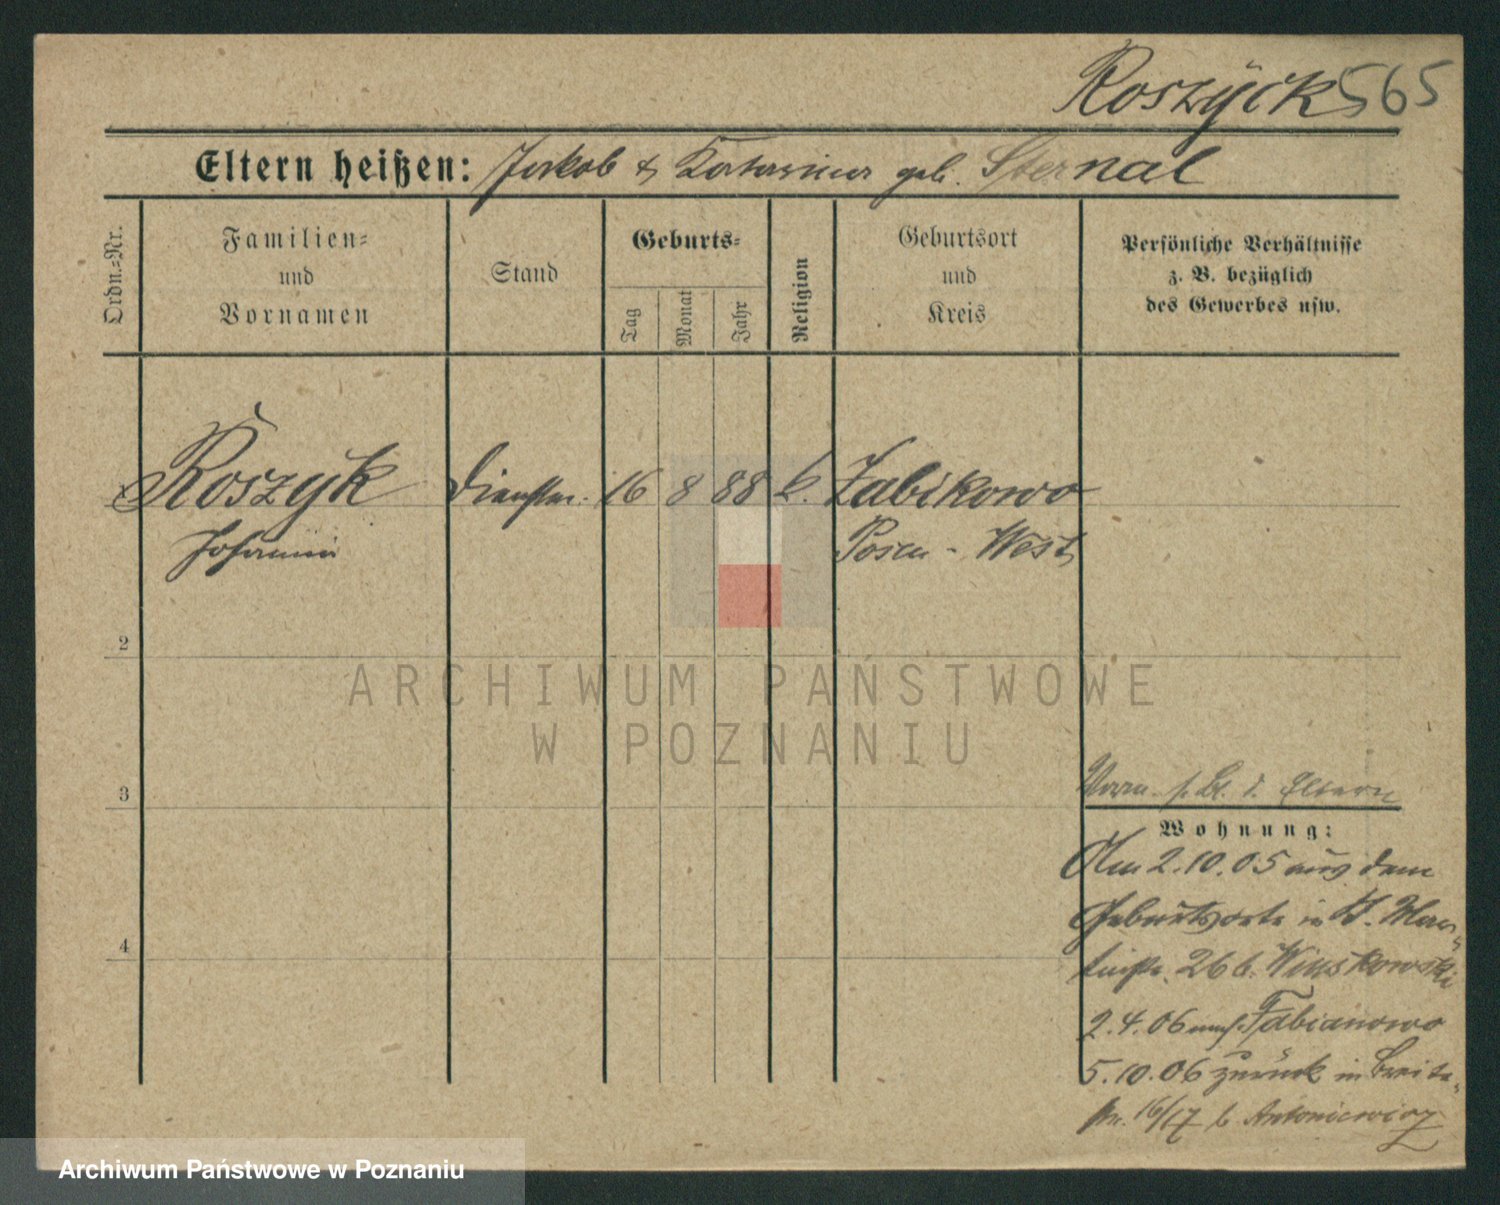 Roszÿck 565
Eltern heißen: Jakob & Katarina geb. Sternal
Ordn.=Nr.
Familien=
und
Vornamen
Stand
Geburts=
Tag
Monat
Jahr
Religion
Geburtsort
und
Kreis
Persönliche Verhältnisse
z. B. bezüglich
des Gewerbes usw.
Roszyk Dienstm. 16 8 88 k. Zabikowo
Johanna Posen - West
2
3
4
s. Bl. d. Eltern
Wohnung:
Am 2.10.05 aus dem
Geburtsorte in St. Mar-
tinstr. 26 b.
2.4.06 nach Fabianowo
5.10.06 zurück in Breite-
str. 16/17 b. Antoniewicz
ARCHIWUM PAŃSTWOWE
W POZNANIU
Archiwum Państwowe w Poznaniu